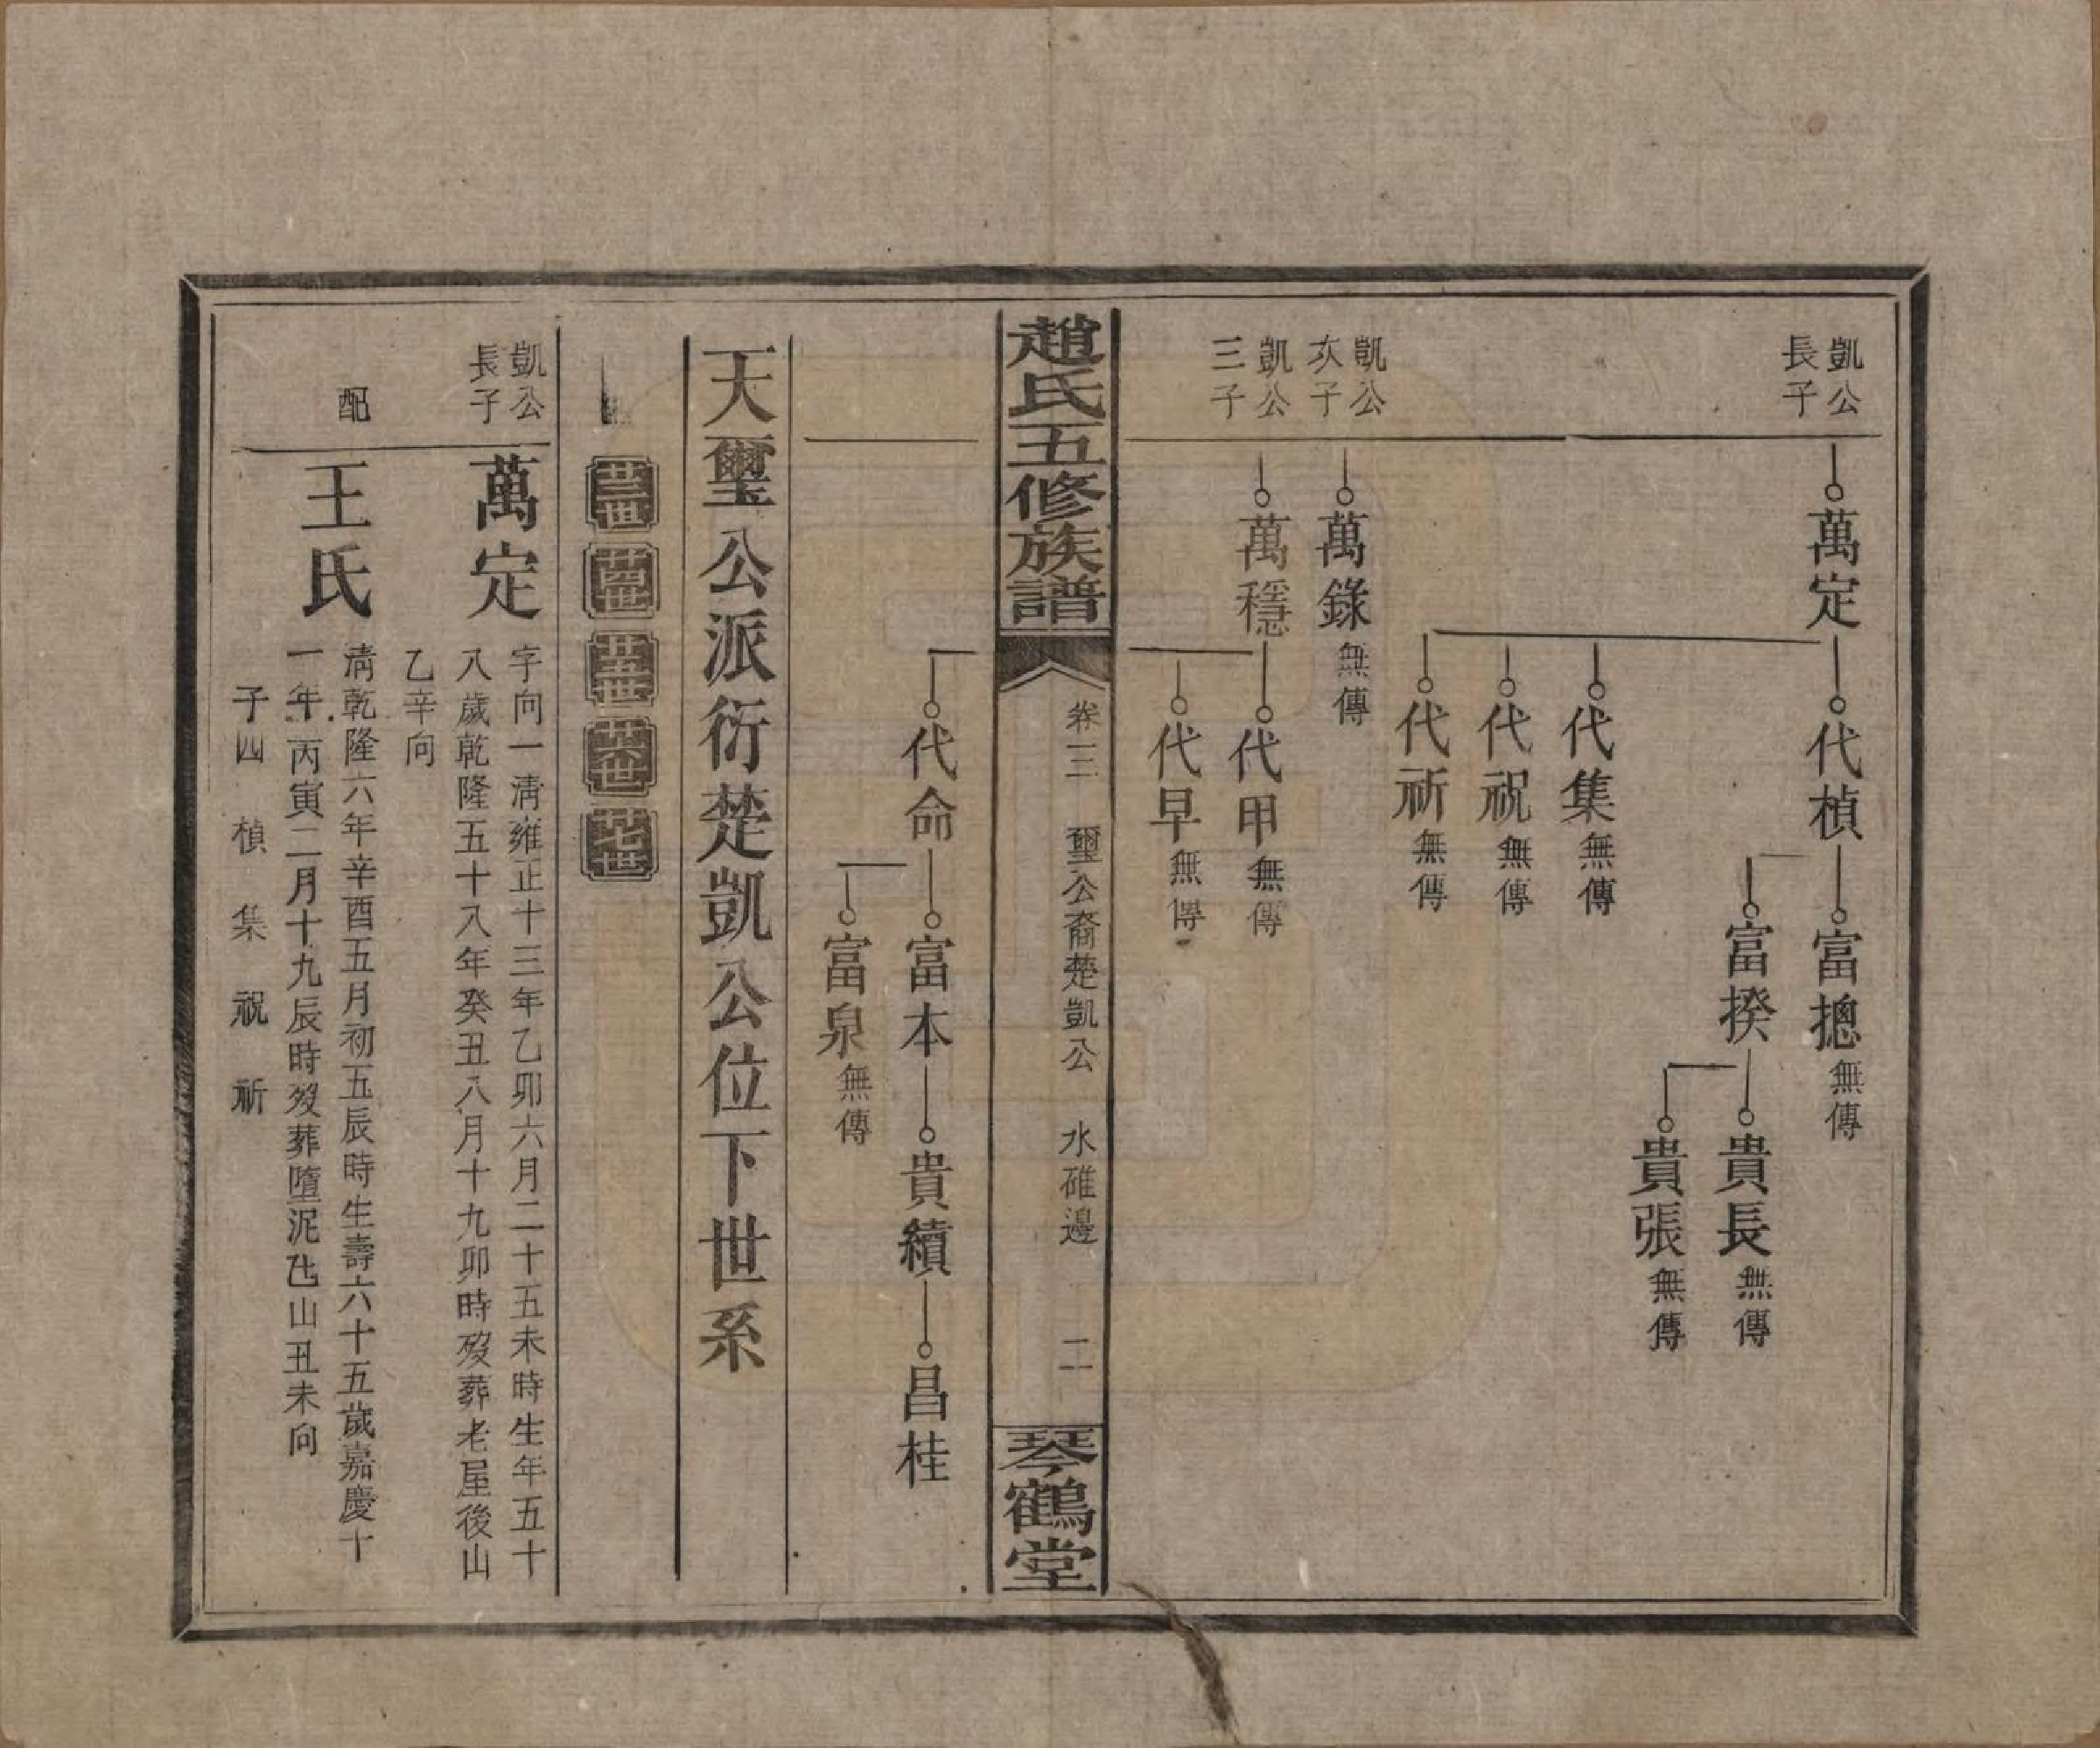 凱公
長子
萬定
代楨
富摠無傳
富揆
貴長無傳
貴張無傳
代集無傳
代祝無傳
代祈無傳
凱公
次子
萬錄無傳
凱公
三子
萬穩
代甲無傳
代早無傳
趙氏五修族譜
卷三 璽公裔楚凱公 水碓邊 二
琴鶴堂
代命
富本
貴績
昌桂
富泉無傳
天璽公派衍楚凱公位下世系
廿三世
廿四世
廿五世
廿六世
廿七世
凱公
長子
萬定
字向一清雍正十三年乙卯六月二十五未時生年五十
八歲乾隆五十八年癸丑八月十九卯時歿葬老屋後山
乙辛向
配
王氏
清乾隆六年辛酉五月初五辰時生壽六十五歲嘉慶十
一年丙寅二月十九辰時歿葬墮泥氹山丑未向
子四 楨 集 祝 祈